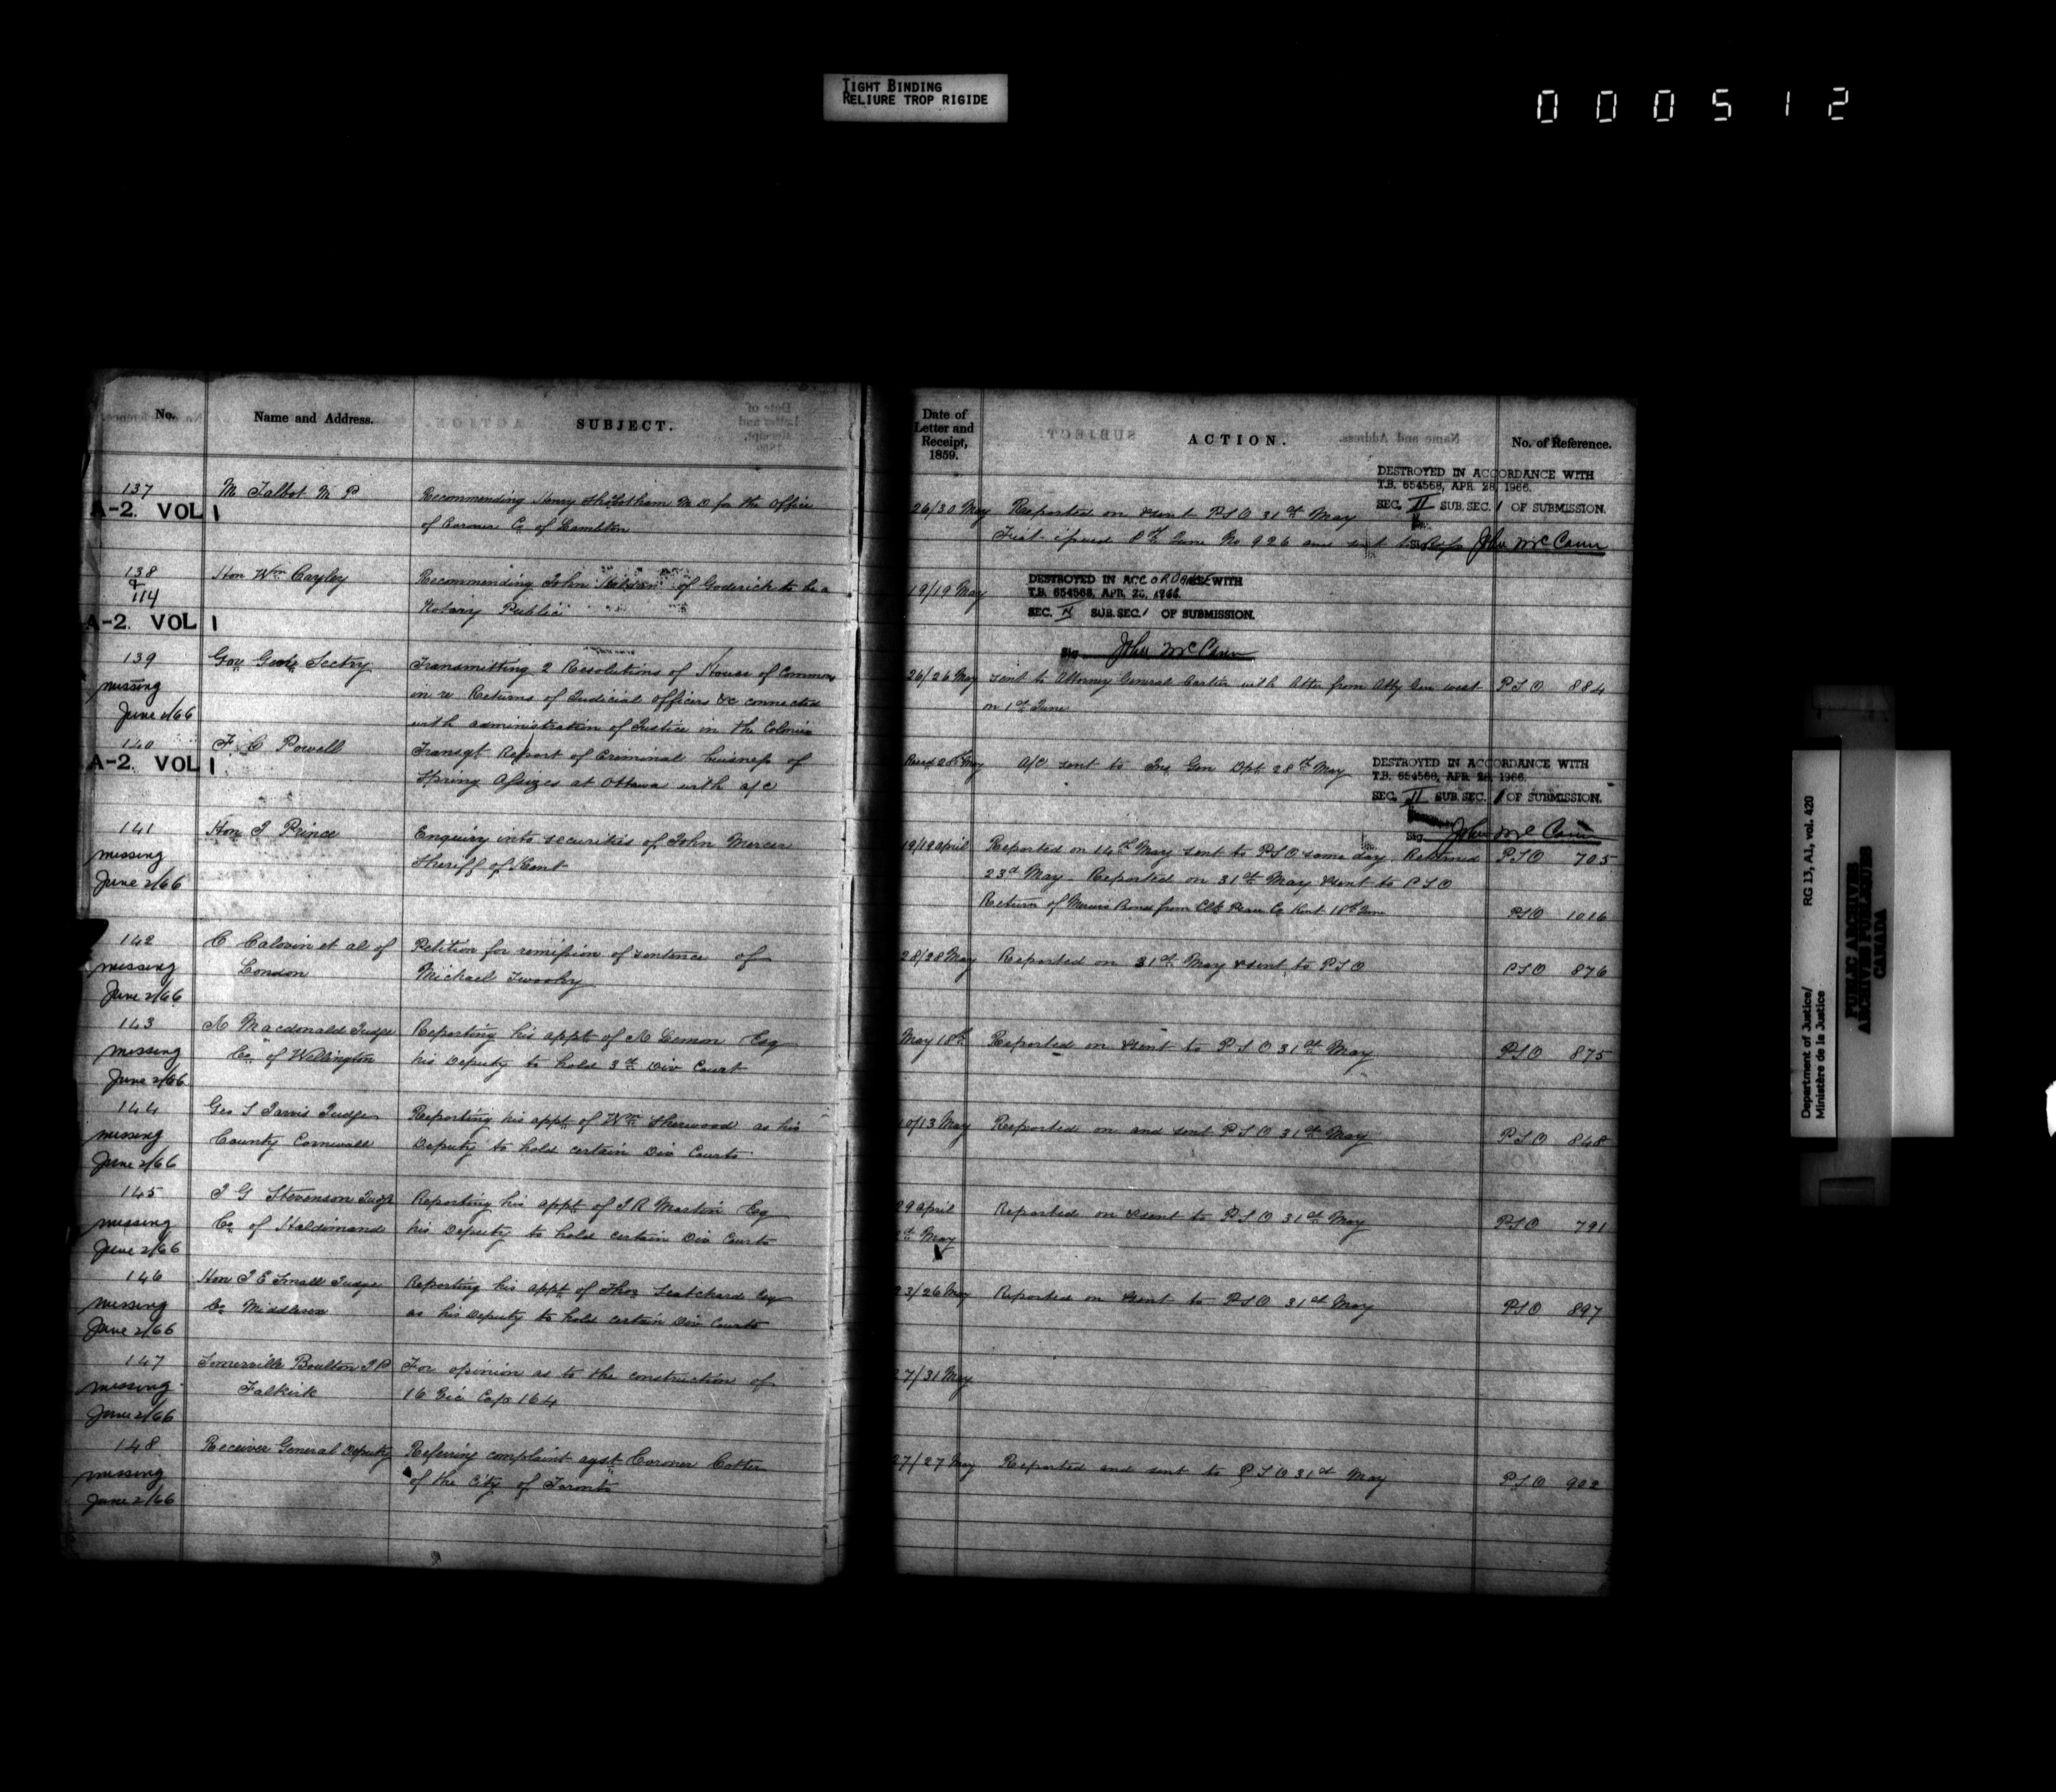 TIGHT BINDING
RELIURE TROP RIGIDE
000512
No.
Name and Address.
SUBJECT.
137
M Talbot M P
Recommending Henry M D for the Office
A-2. VOL 1
of Coroner Co of Lambton
138
&
114
Hon Wm Cayley
Recommending John of Goderich to be a
Notary Public
A-2. VOL 1
139
Gov Genls Sectry
Transmitting 2 Resolutions of House of Commons
missing
in re Returns of Judicial officers &c connected
June 2/66
with administration of Justice in the Colonies
140
F C Powell
Transgt Report of Criminal business of
A-2. VOL 1
Spring Assizes at Ottawa with a/c
141
Hon J Prince
Enquiry into securities of John Mercer
missing
Sheriff of Kent
June 2/66
142
C et al of
Petition for remission of sentence of
missing
London
Michael
June 2/66
143
A Macdonald Judge
Reporting his appt of A Lemon Esq
missing
Co. of Wellington
his Deputy to hold 3rd Div Court
June 2/66
144
Geo S Jarvis Judge
Reporting his appt of Wm Sherwood as his
missing
County Cornwall
Deputy to hold certain Div Courts
June 2/66
145
J G Stevenson Judge
Reporting his appt of J R Martin Esq
missing
Co. of Haldimand
his Deputy to hold certain Div Courts
June 2/66
146
Hon J E Small Judge
Reporting his appt of Thos Scatchard Esq
missing
Co Middlesex
as his Deputy to hold certain Div Courts
June 2/66
147
Somerville Boulton J P
For opinion as to the construction of
missing
Falkirk
16 Vic Cap 164
June 2/66
148
Receiver General Deputy
Referring complaint agst Coroner
missing
of the City of Toronto
June 2/66
Date of
Letter and
Receipt,
1859.
ACTION.
No. of Reference.
DESTROYED IN ACCORDANCE WITH
T.B. 654568, APR. 28, 1966.
SEC. II SUB.SEC. 1 OF SUBMISSION.
26/30 May
Reported on & sent P S O 31st May
8th June No 926 and sent to
John McCann
19/19 May
DESTROYED IN ACCORDANCE WITH
T.B. 654568, APR. 28, 1966.
SEC. II SUB.SEC. 1 OF SUBMISSION.
Sig. John McCann
26/26 May
sent to Attorney General Cartier with letter from Atty Gen west
P S O 884
on 1st June
Recd 28th May
A/C sent to Ins Gen Dpt 28th May
DESTROYED IN ACCORDANCE WITH
T.B. 654568, APR. 28, 1966.
SEC. II SUB.SEC. 1 OF SUBMISSION.
Sig. John McCann
19/19 April
Reported on 14th May sent to P S O same day. Returned
P S O 705
23rd May. Reported on 31st May & sent to P S O
Return of Mercers Bond from Clk Peace Co Kent 18th June
P S O 1016
28/28 May
Reported on 31st May & sent to P S O
P S O 876
May 18th
Reported on & sent to P S O 31st May
P S O 875
10/13 May
Reported on and sent P S O 31st May
P S O 848
29 April
Reported on & sent to P S O 31st May
P S O 791
May
23/26 May
Reported on & sent to P S O 31st May
P S O 897
27/31 May
27/27 May
Reported and sent to P S O 31st May
P S O 902
Department of Justice/
Ministère de la Justice
RG 13, A1, vol. 420
PUBLIC ARCHIVES
ARCHIVES PUBLIQUES
CANADA